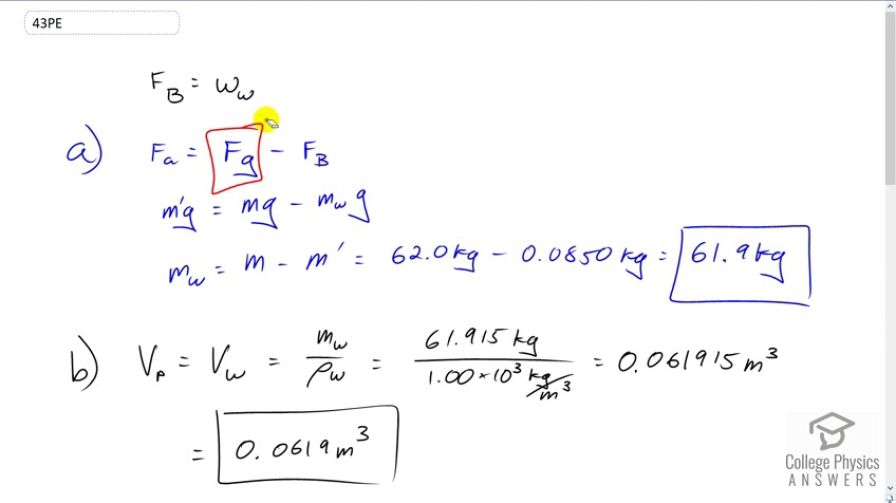 43PE
F_B = w_w
a) F_a = F_g - F_B
m'g = mg - m_w g
m_w = m - m' = 62.0 kg - 0.0850 kg = 61.9 kg
b) V_p = V_w = m_w / ρ_w = 61.915 kg / 1.00 × 10³ kg/m³ = 0.061915 m³
= 0.0619 m³
College Physics
ANSWERS